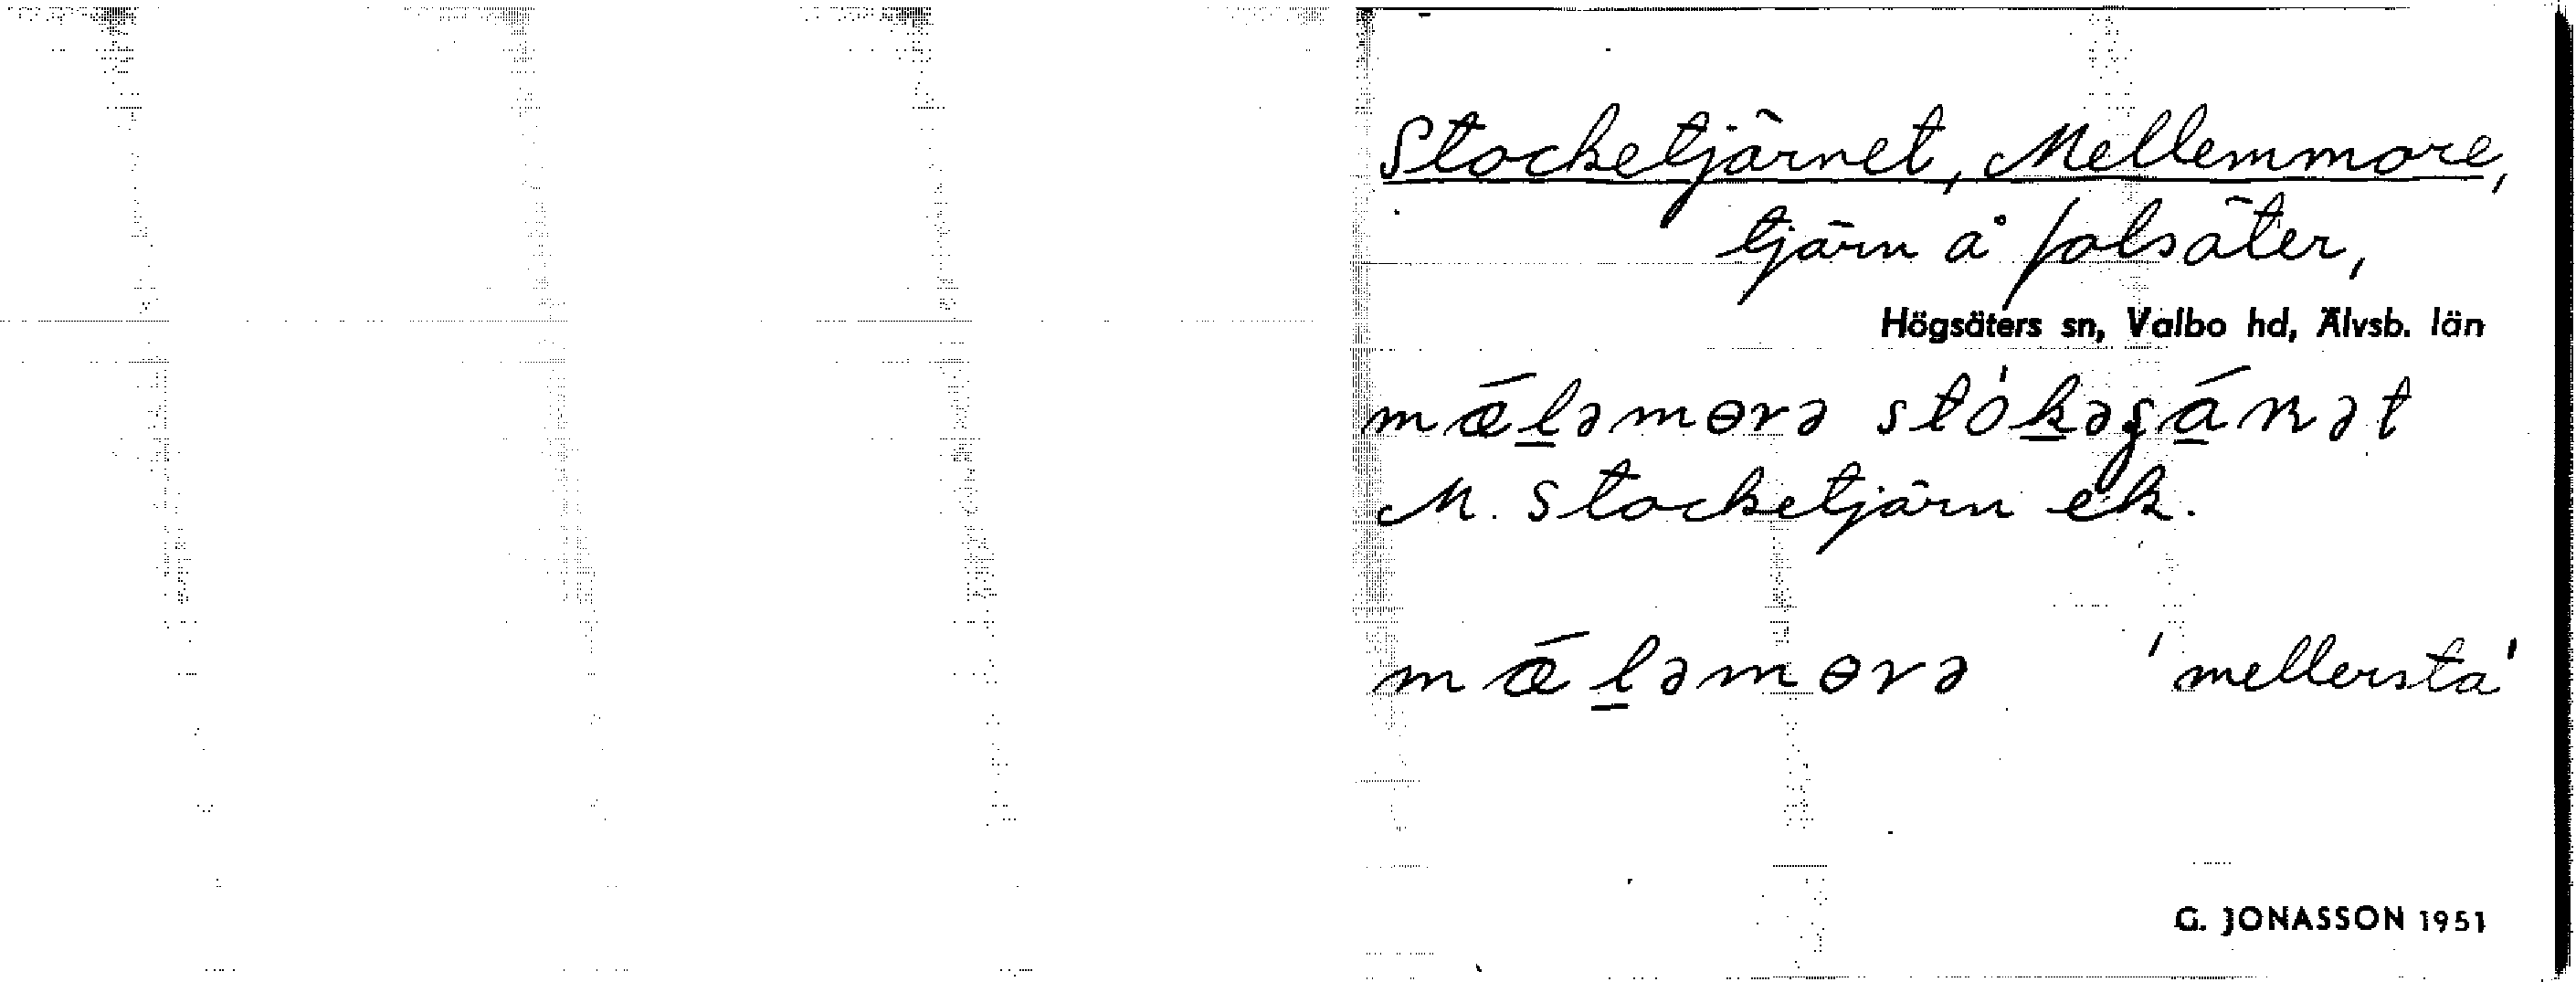 Stocketjärnet, Mellemmore,
tjärn å folsäter,
Högsäters sn, Valbo hd, Älvsb. län
mǽl̠əmɵrə
M. Stocketjärn ek.
mǽl̠əmɵrə 'mellersta'
G. JONASSON 1951